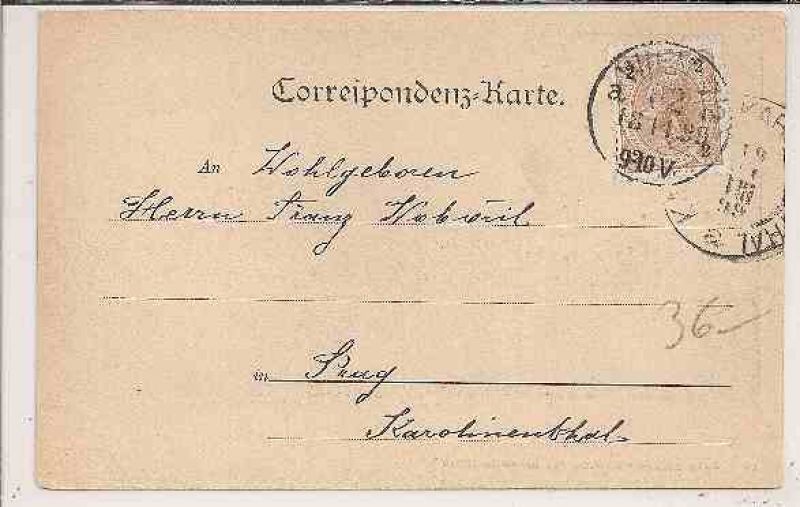 Correspondenz-Karte.
An Wohlgeboren
Herrn Franz
in Prag
Karolinenthal
36
9 30 V.